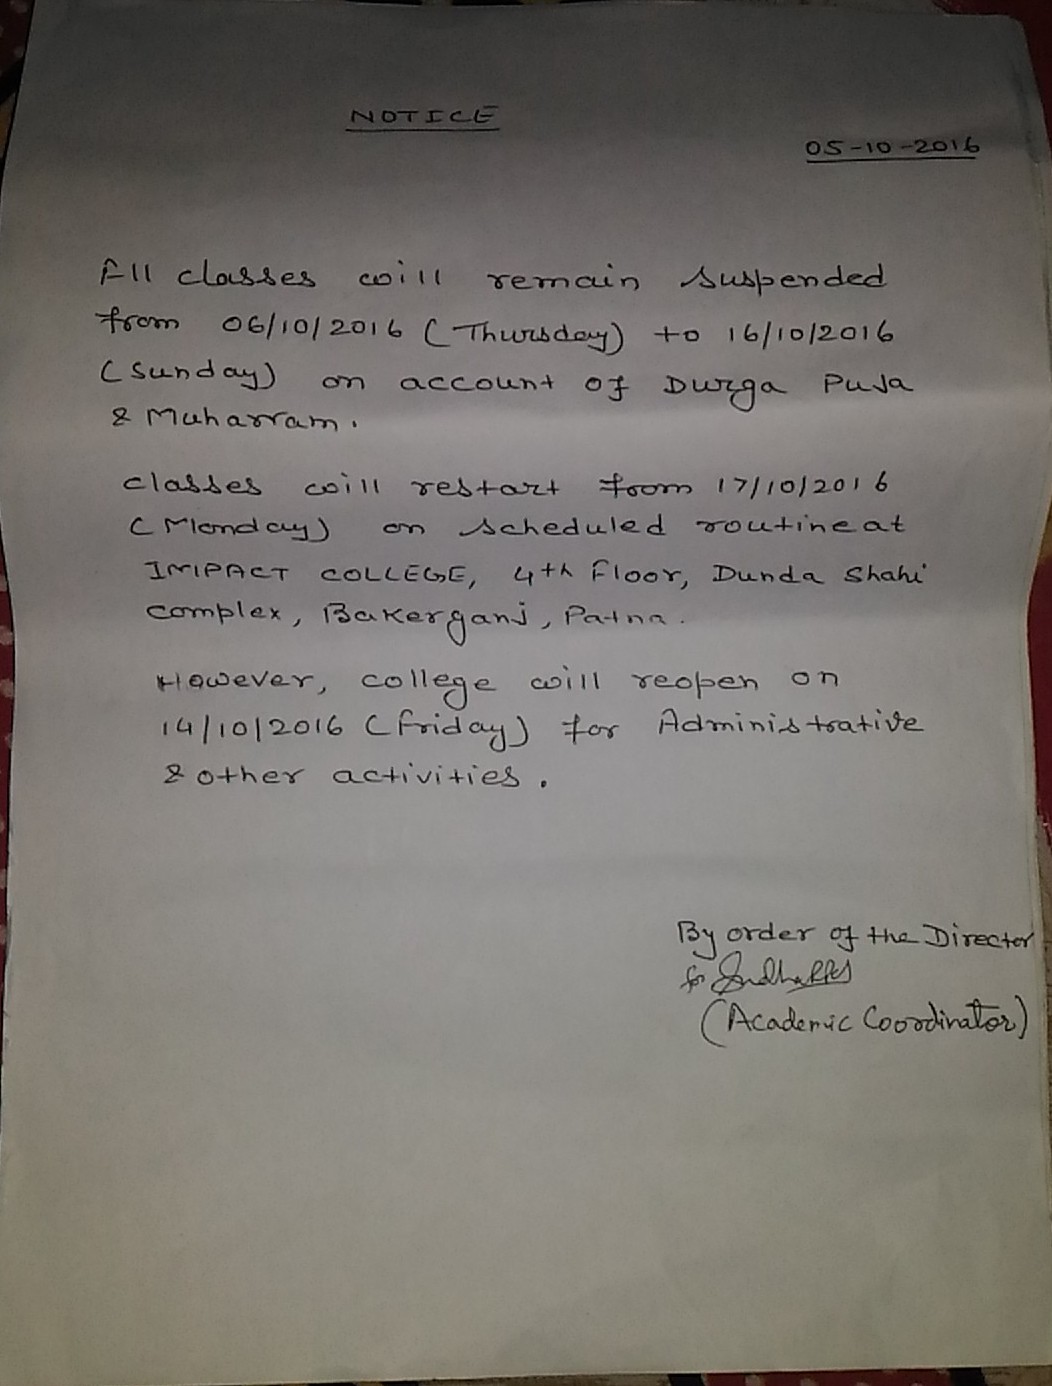 NOTICE
05-10-2016
All classes will remain suspended
from 06/10/2016 (Thursday) to 16/10/2016
(Sunday) on account of Durga Puja
& Muharram.
classes will restart from 17/10/2016
(Monday) on scheduled routine at
IMPACT COLLEGE, 4th Floor, Dunda Shahi
complex, Bakerganj, Patna.
However, college will reopen on
14/10/2016 (Friday) for Administrative
& other activities.
By order of the Director
for
(Academic Coordinator)